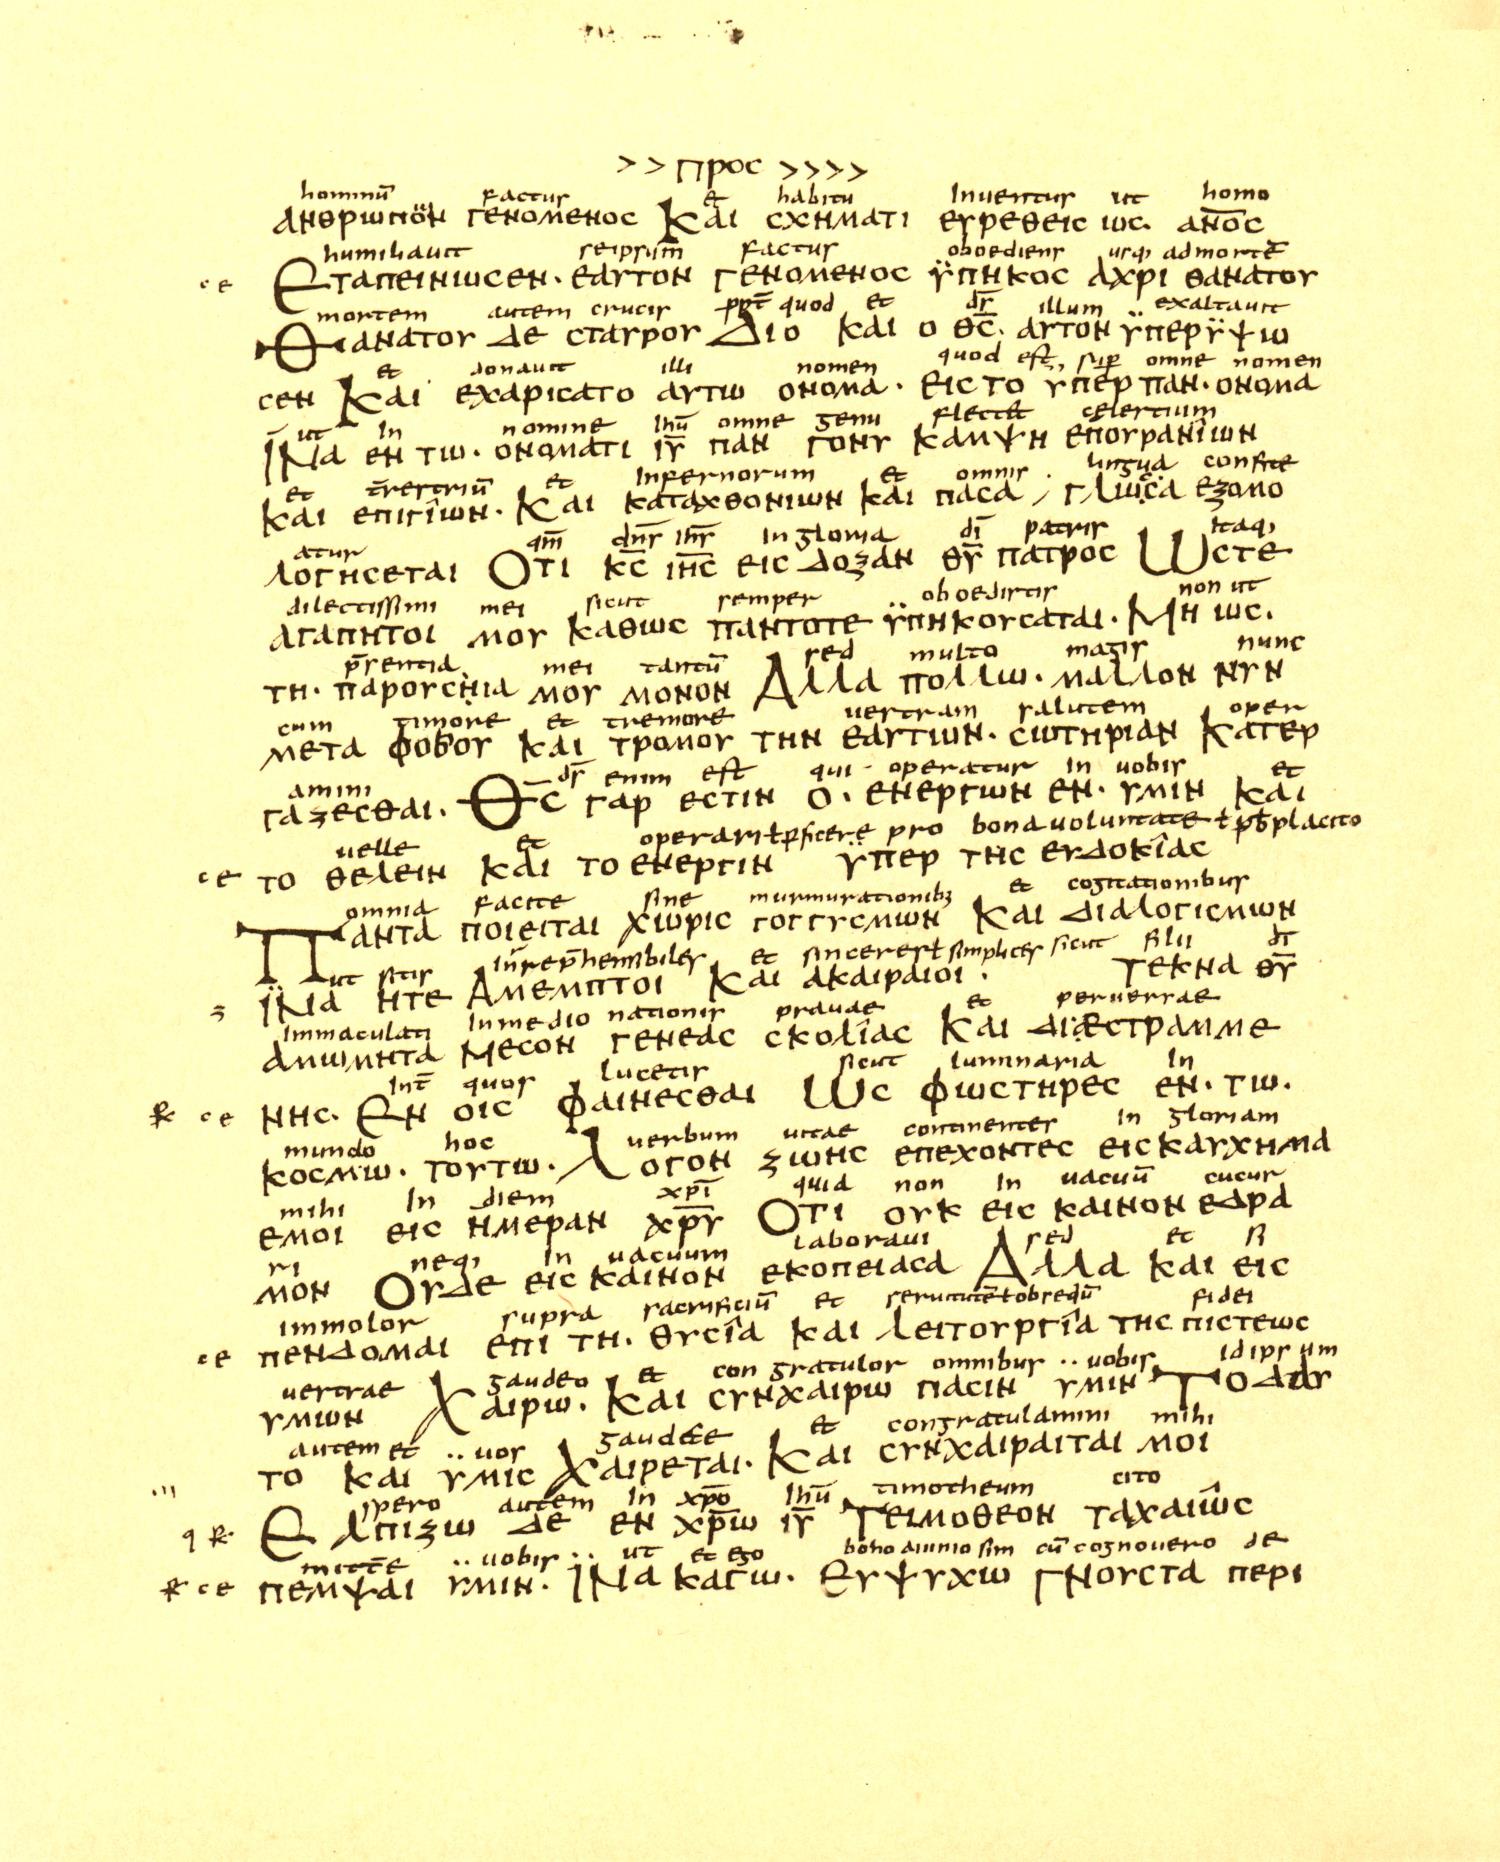 >> προς >>>>
hominū factus et habitu Inventus ut homo
ανθρωπὸν γενομενος Και σχηματι ευρεθεις ως· αν̅ο̅ς
humiliavit seipsum̄ factus oboediens usq; ad mortē
ce Εταπεινωσεν· εαυτον γενομενος ϋπηκος αχρι θανατου
mortem autem crucis ppt̄ quod et dr̄ illum exaltavit
Θανατου δε σταυρου Διο και ο θ̅ς̅· αυτον ϋπερϋψω
et donavit illi nomen quod est, sup̄ omne nomen
σεν Και εχαρισατο αυτω ονομα· εις το υπερ παν· ονομα
ut In nomine Ihū omne genu flectet celestium
ΪΝα εν τω· ονοματι ι̅υ̅ παν γονυ καμψη επουρανῖων
et t̄restriū et Infernorum et omnis lingua confite
και επιγῖων· Και καταχθονιων και πασα γλωσσα εξομο
atur qm̄ dnr̄ ihr̄ In gloria dī patris Itaq;
λογησεται Οτι κ̅ς̅ ιη̅ς̅ εις δοξαν θ̅υ̅ πατρος Ωστε
dilectissimi mei sicut semper oboedistis non ut
αγαπητοι μου καθως παντοτε ϋπηκουσαται· Μη ως·
p̄rentia mei tantū sed multo magis nunc
τη· παρουσηια μου μονον Αλλα πολλω· μαλλον νυν
cum timore et tremore vestram salutem oper
μετα φοβου και τρομου την εαυτων· σωτηριαν κατερ
amini dr̄ enim est qui operatur in vobis et
γαζεσθαι· Θ̅ς̅ γαρ εστιν ο· ενεργων εν· υμιν και
velle et operari ł p̄ficere pro bona voluntate ł p̄ b placito
ce το θελειν και το ενεργιν ϋπερ της ευδοκῖας
omnia facite sine murmurationib; et cogitationibus
Παντα ποιειται χωρις γογγυσμων και διαλογισμων
ut sitis Inrep̄hensibiles et sinceres ł simplices sicut filii dī
ζ ΪΝα ητε Αμεμπτοι και ακαιραιοι· τεκνα θ̅υ̅
Immaculati In medio nationis pravae et perversae
αμωμητα μεσον γενεας σκολῖας Και διεστραμμε
Int̄ quos lucetis sicut luminaria In
R ce νης· Εν οις φαινεσθαι Ως φωστηρες εν· τω·
mundo hoc verbum vitae continentes in gloriam
κοσμω· τουτω· Λογον ζωης επεχοντες εις καυχημα
mihi In diem xpī quia non in vacuū cucur
εμοι εις ημεραν χ̅ρ̅υ̅ Οτι ουκ εις καινον εδρα
ri neq; in vacuum laboravi sed et si
μον Ουδε εις καινον εκοπειασα Αλλα και εις
immolor supra sacrificiū et servitutē ł obsequū fidei
ce πενδομαι επι τη· θυσῖα και λειτουργῖα της πιστεως
vestrae gaudeo et congratulor omnibus vobis idipsum
υμων Χαιρω· Και συνχαιρω πασιν υμιν Το δαυ
autem et vos gaudete et congratulamini mihi
το και υμις Χαιρεται· Και συνχαιραιται μοι
spero autem in xpō Ihū timotheum cito
q R Ελπιζω δε εν χ̅ρ̅ω̅ ι̅υ̅ Τειμοθεον ταχαιως
mittēe vobis ut et ego bono animo sim cū cognovero de
R ce πεμψαι υμιν· ΙΝα καγω· Ευψυχω γνουστα περι